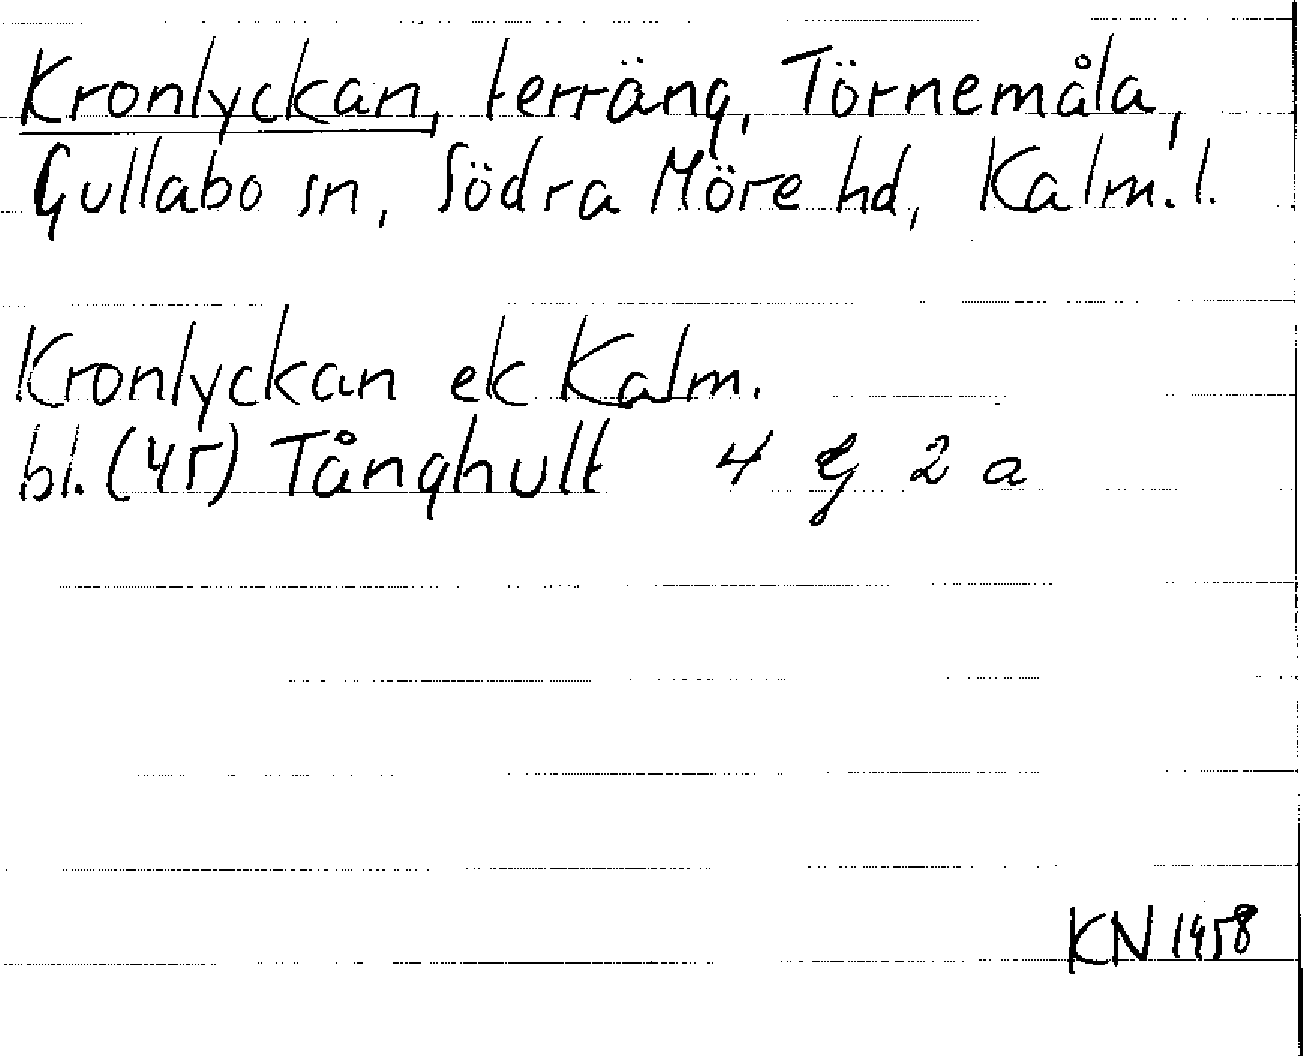 Kronlyckan, terräng, Törnemåla,
Gullabo sn, Södra Möre hd, Kalm. l.
Kronlyckan ek Kalm.
bl. (45) Tånghult 4 G 2 a
KN 1958